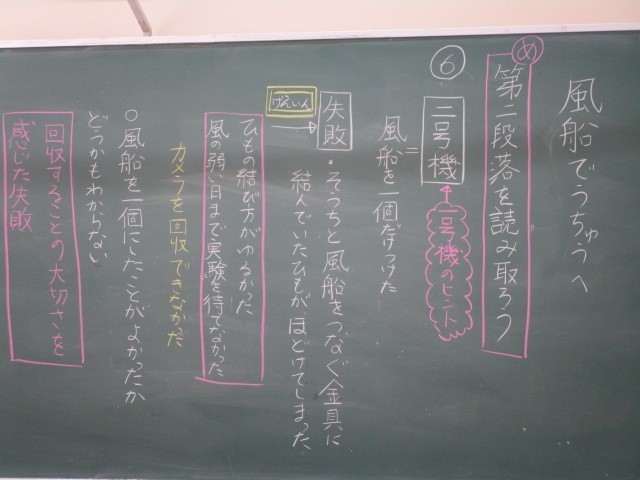 風船でうちゅうへ
め
第二段落を読み取ろう
⑥
二号機
一号機のヒント
=
風船を一個だけつけた
失敗
・そうちと風船をつなぐ金具に
結んでいたひもがほどけてしまった
げんいん
ひもの結び方がゆるかった
風の弱い日まで実験を待てなかった
カメラを回収できなかった
○風船を一個にしたことがよかったか
どうかもわからない
回収することの大切さを
感じた失敗